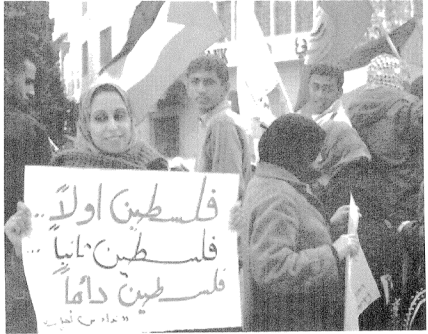 فلسطين اولاً ..
فلسطين ثانياً ...
فلسطين دائماً